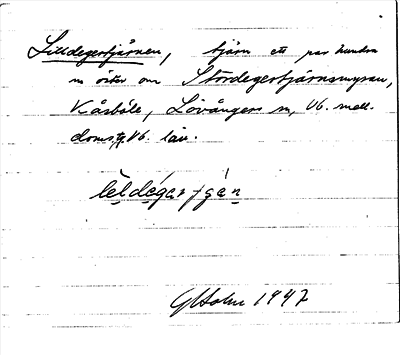 Lilldegertjärnen, tjärn ett par hundra
m öster om Stordegertjärnsmyran,
Kåsböle, Lövångers sn, Vb. mell.
doms. Vb. län.
Gösta Holm 1947